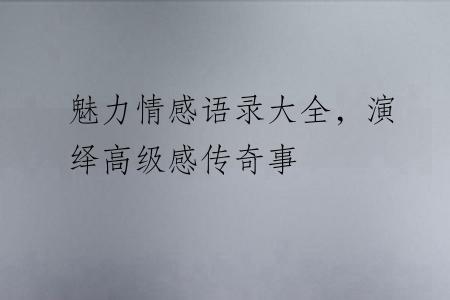 魅力情感语录大全，演
绎高级感传奇事